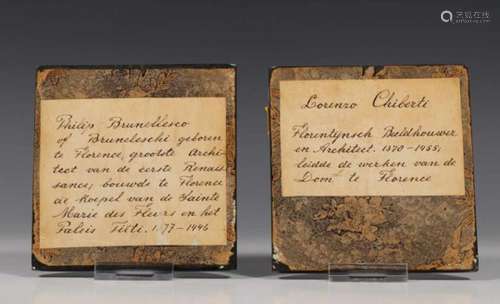 Philip Bruneliesco
of Bruneleschi geboren
te Florence, grootste Archi-
tect van de eerste Renais-
sance; bouwde te Florence
de Koepel van de Sainte
Marie des Fleurs en het
Paleis Titti. 1377-1446
Lorenzo Chiberti
Florentijnsch Beeldhouwer
en Architect. 1370-1455;
leidde de werken van de
Dom te Florence